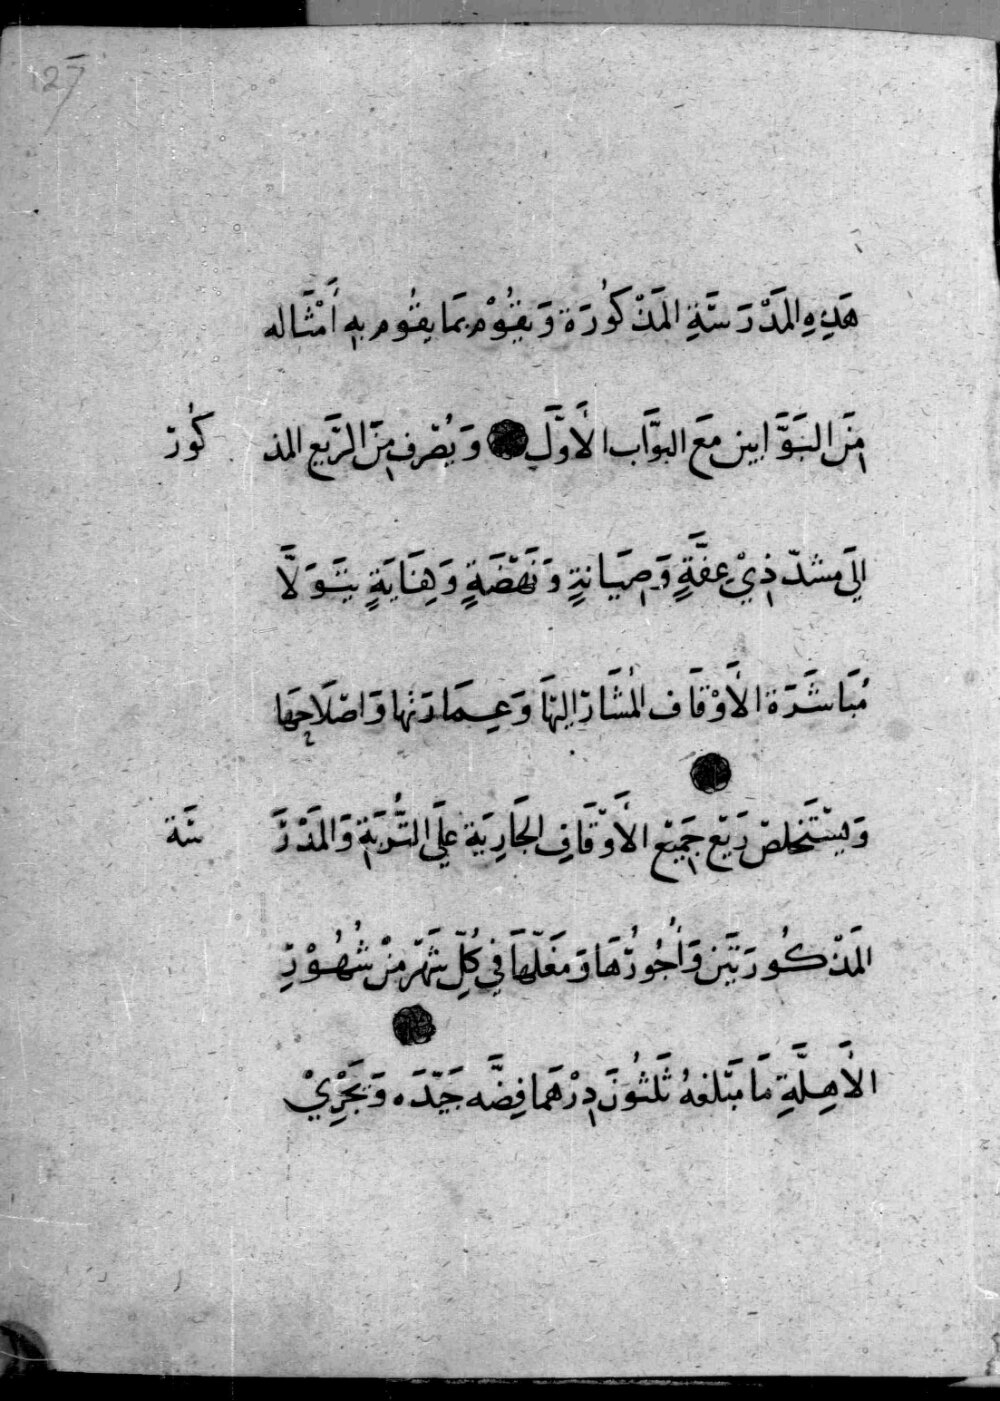 127
هَذِهِ المَدْرَسَةِ المَذْكُورَة وَيَقُوْم بِمَا يقُوم بهِ أَمْثَاله
مِنَ البَوَّابين مَعَ البوَّاب الأَوَّلِ وَيُصْرف مِنَ الرَّيع المذكُور
اليَ مشدّ ذِيْ عِفَّةٍ وَصِيَانةٍ وَنَهْضَةٍ وَهِنَايَةٍ يَتَوَلَّا
مُبَاشَرَة الأَوْقَاف المُشَار اليْهَا وَعِمَارَتها وَاصْلَاحِهَا
وَيسْتَخلصْ رَيْع جَمِيْع الأَوْقَافِ الجَارِيَة عَلَى التُّربَةِ وَالمَدْرَسَة
المَذْكُورَتَيْن وَأُجُورُهَا وَمَغَلّهَا فِي كُلِّ شَهْر مِنْ شُهُوْرِ
الأَهِلَّةِ مَا مَبْلغهُ ثَلثُونَ دِرْهَما فِضَّه جَيّدَه وَيَجْرِيْ